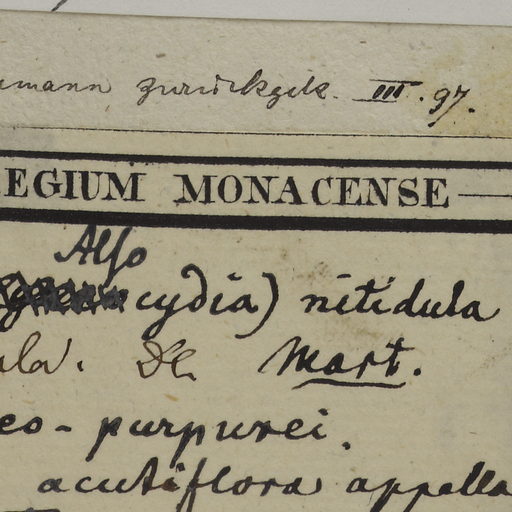 mann zurückgek. III. 97.
EGIUM MONACENSE
Also
cydia) nitidula
ula. De Mart.
eo-purpurei.
acutiflora appella